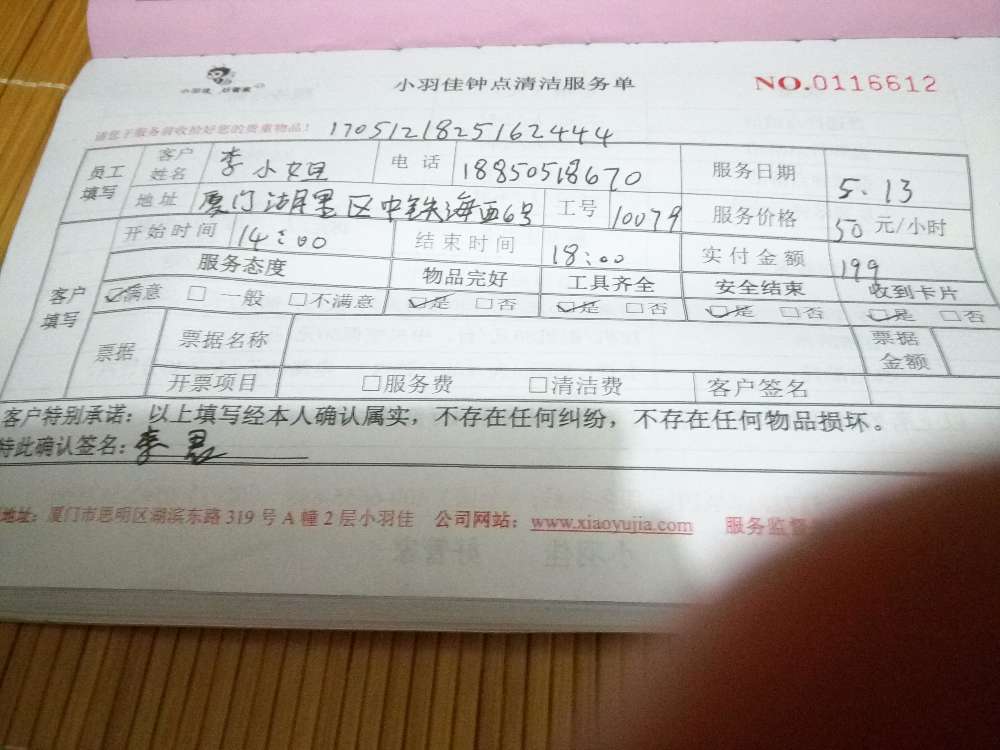 小羽佳 好管家
小羽佳钟点清洁服务单
NO.0116612
请您于服务前收拾好您的贵重物品!
1705121825162444
员工填写 客户姓名 李小姐 电话 18850518670 服务日期 5.13
地址 厦门湖里区中铁海西6号 工号 10079 服务价格 50 元/小时
客户填写 开始时间 14:00 结束时间 18:00 实付金额 199
服务态度 物品完好 工具齐全 安全结束 收到卡片
☑满意 □一般 □不满意 ☑是 □否 ☑是 □否 ☑是 □否 ☑是 □否
票据 票据名称 票据金额
开票项目 □服务费 □清洁费 客户签名
客户特别承诺:以上填写经本人确认属实,不存在任何纠纷,不存在任何物品损坏。
特此确认签名:李
地址:厦门市思明区湖滨东路 319 号 A 幢 2 层小羽佳 公司网站:www.xiaoyujia.com 服务监督
小羽佳 好管家